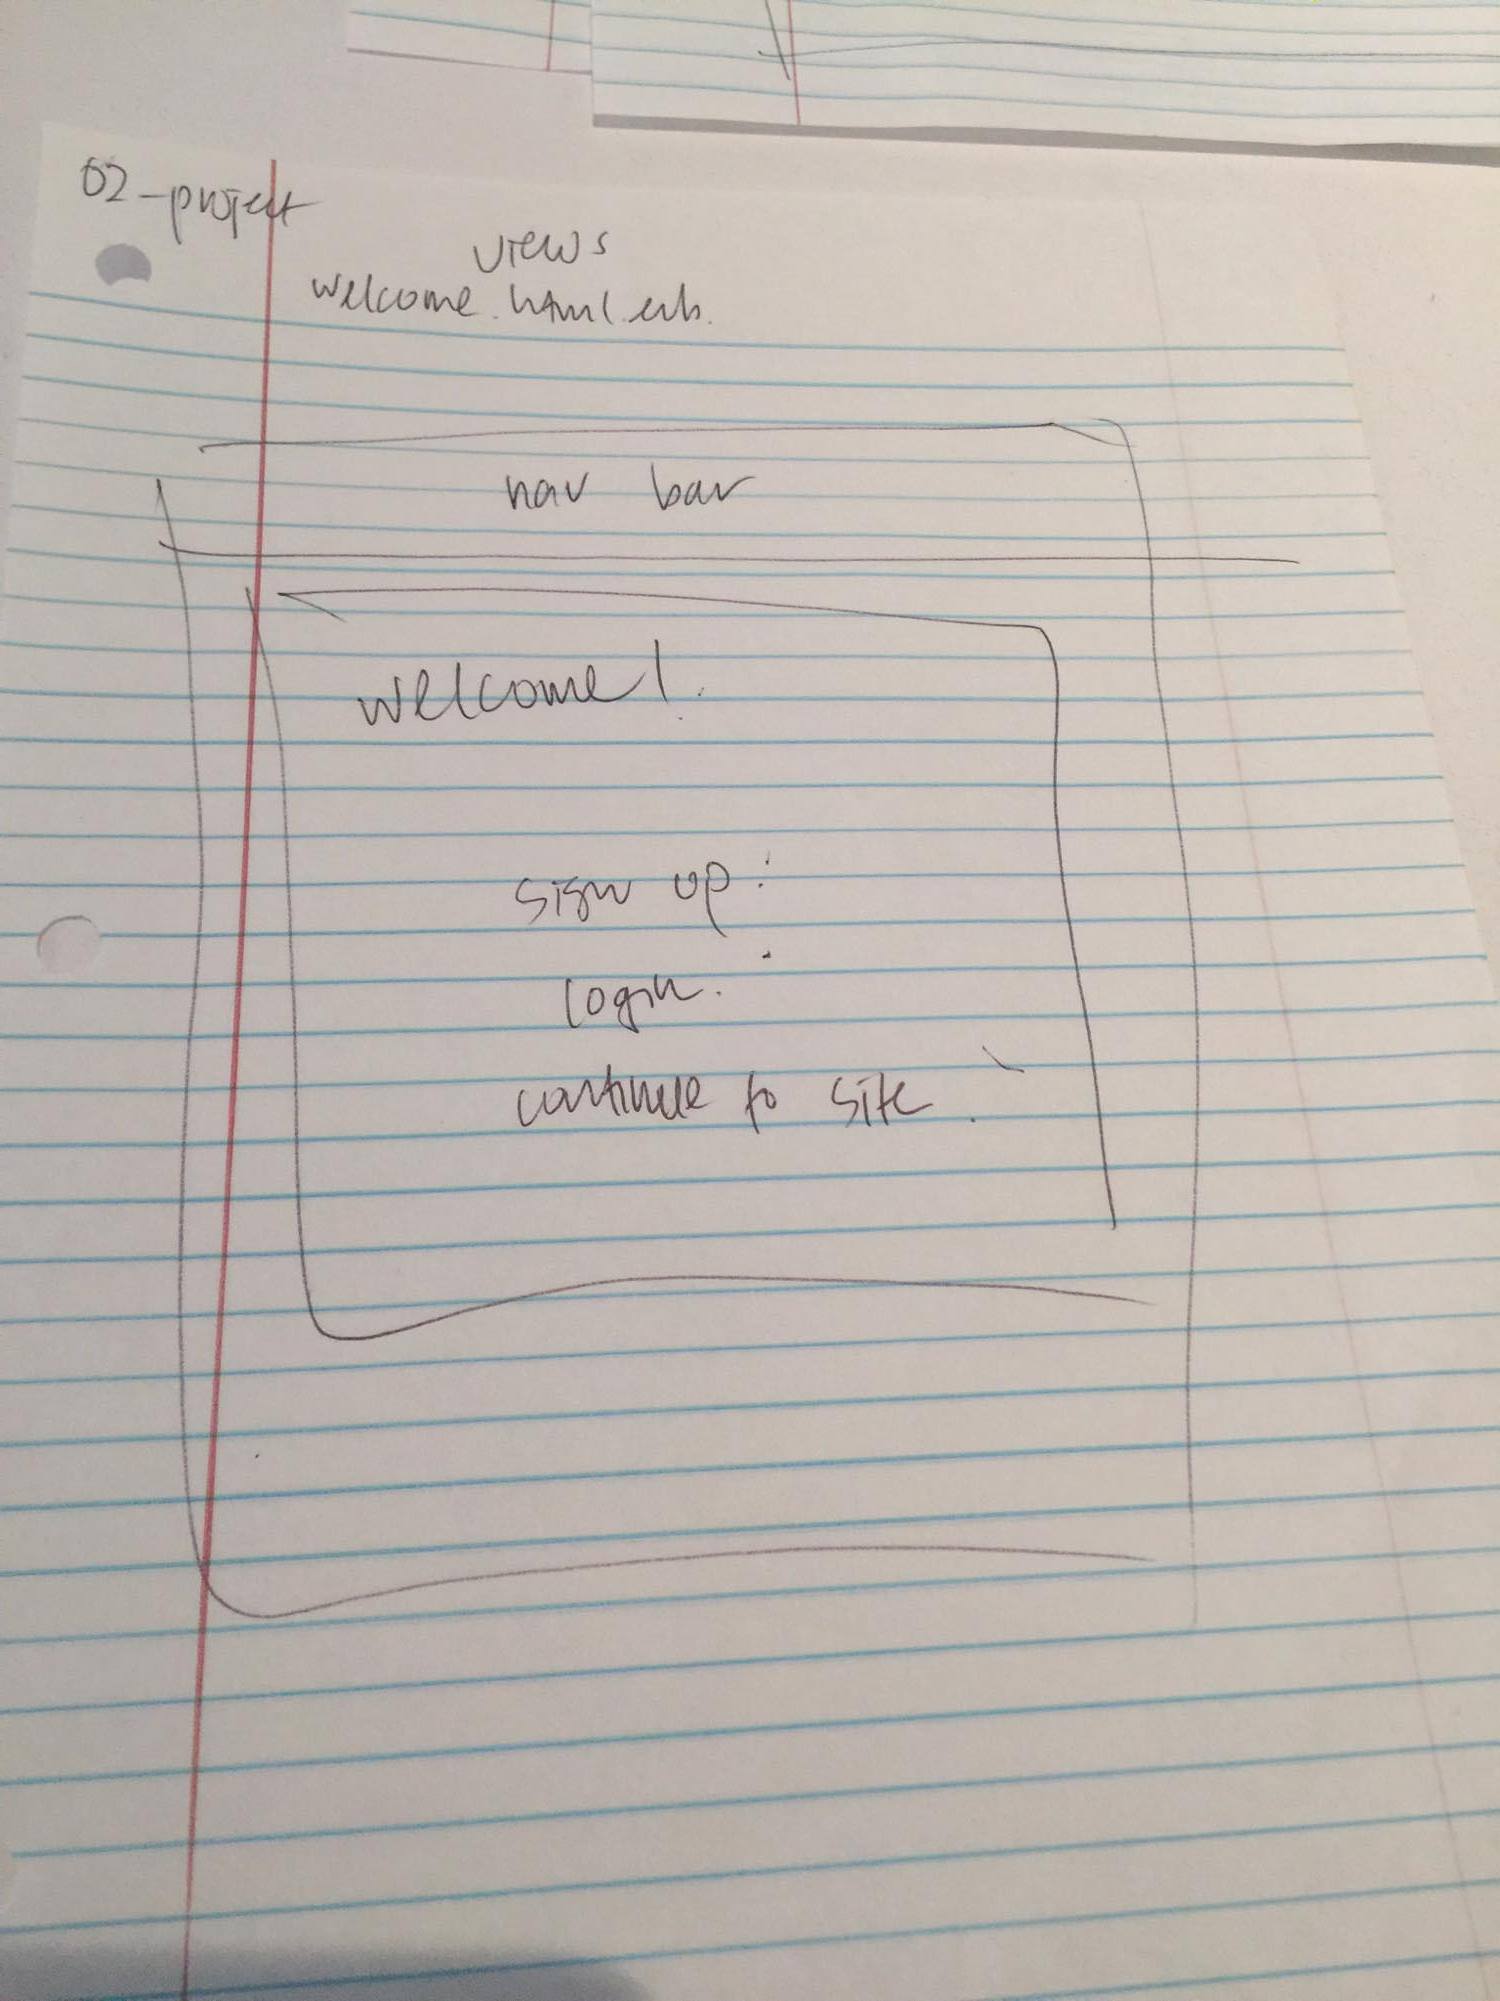 02-project
views
welcome.html.erb.
nav bar
welcome!.
sign up:
login.
continue to site.